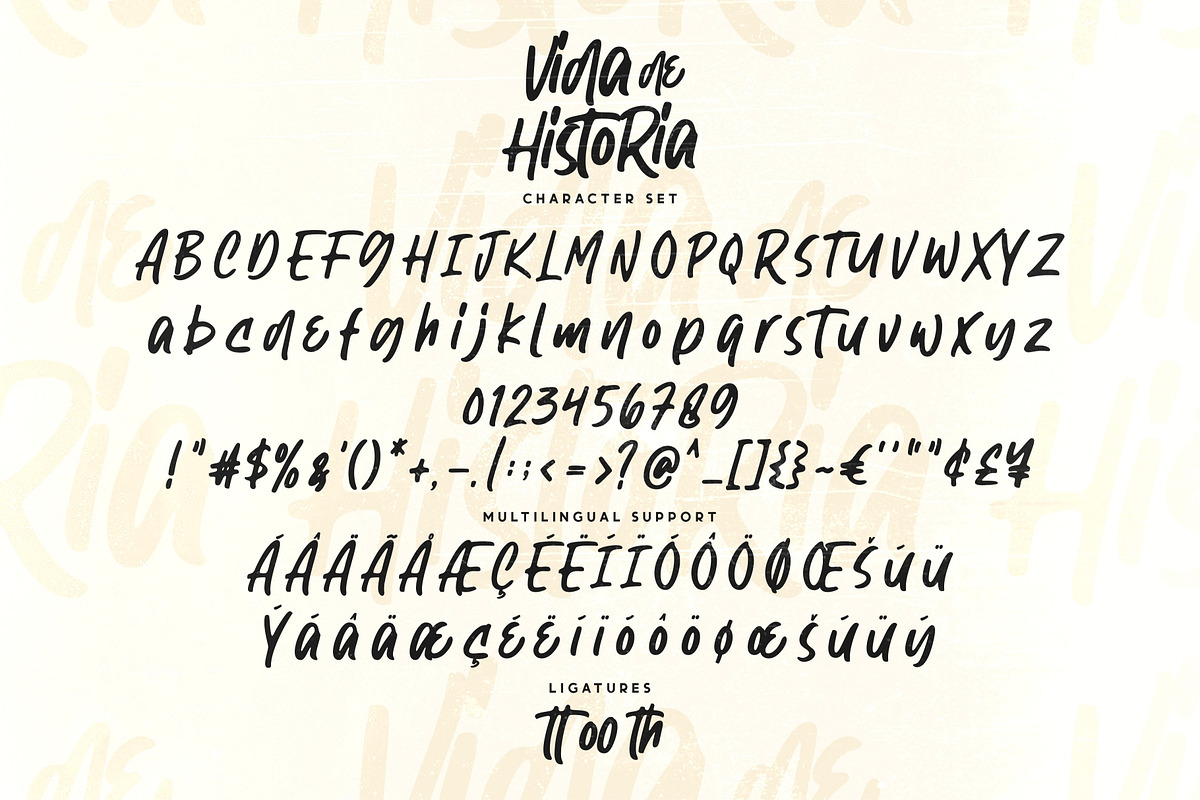 Vida de
HistoRia
CHARACTER SET
ABCDEFGHIJKLMNOPQRSTUVWXYZ
abcdefghijklmnopqrstuvwxyz
0123456789
!"#$%&'()*+,-./:;<=>?@^_[]{}~€‘’“”¢£¥
MULTILINGUAL SUPPORT
ÁÂÄÃÅÆÇÉËÍÏÓÔÖØŒŠÚÜ
Ýáâäæçéëíïóôöøœšúüý
LIGATURES
tt oo th